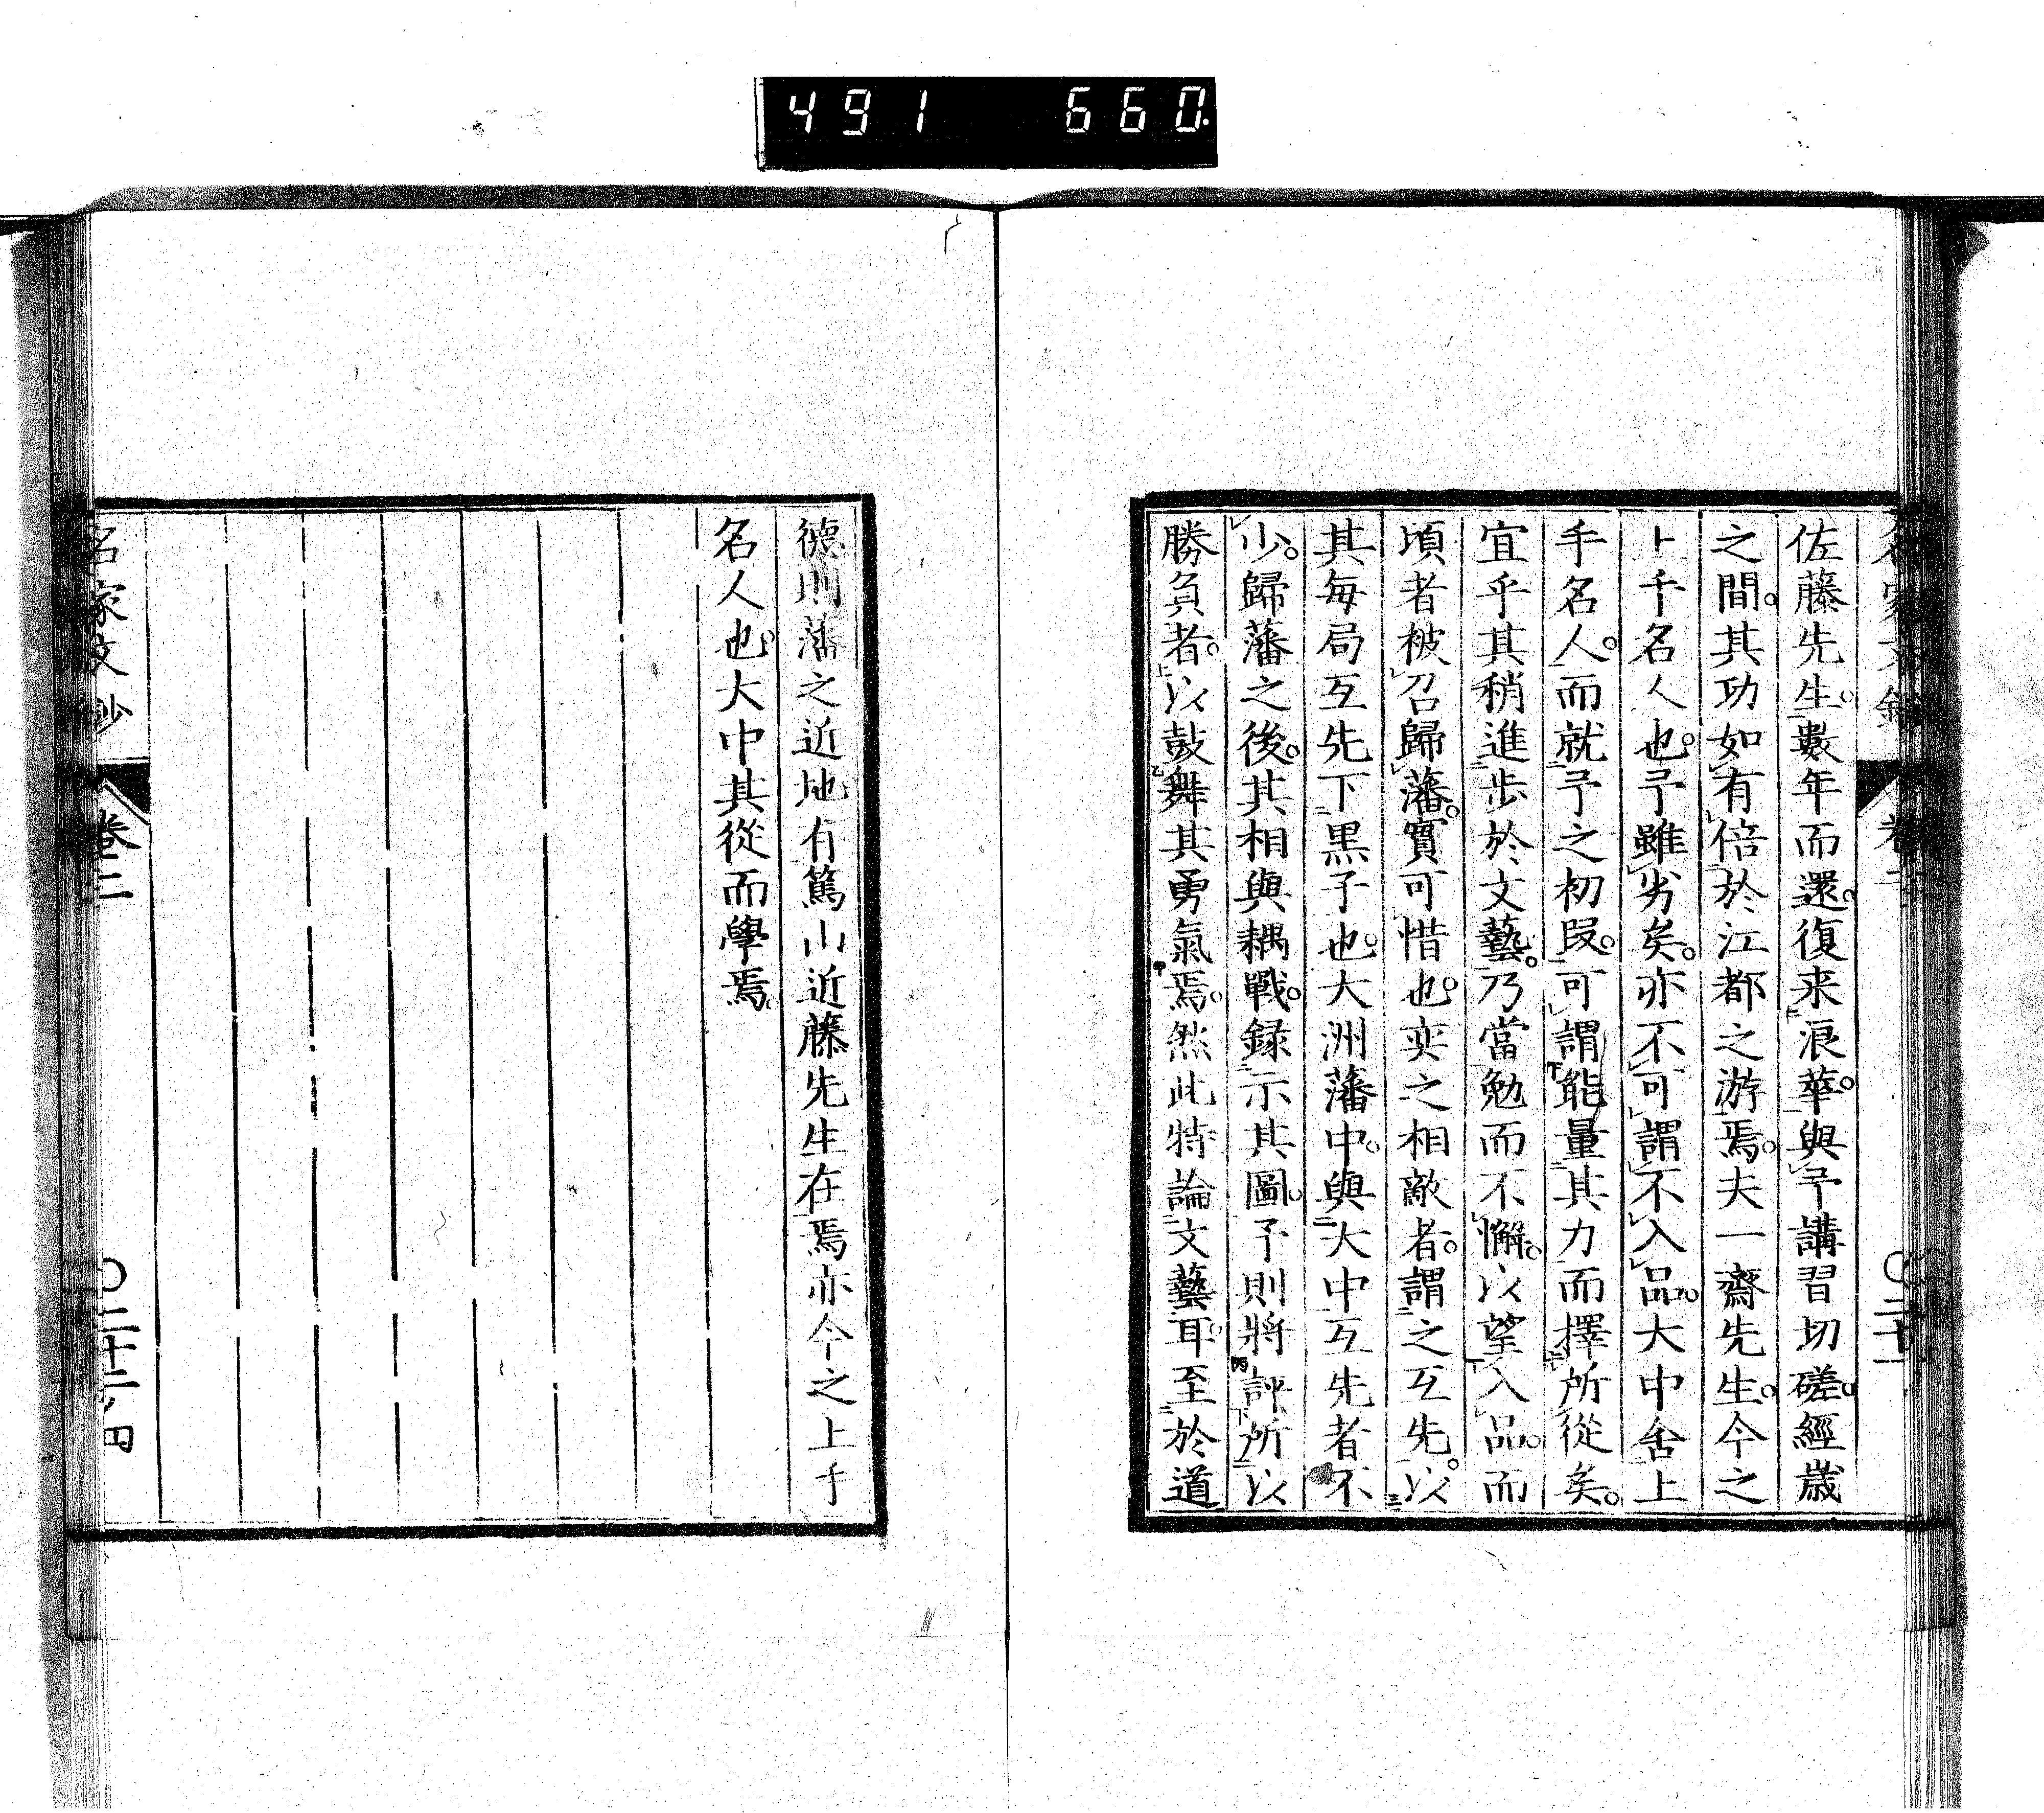 491 660
佐藤先生數年而還復来浪華與予講習切磋經歳
之間其功如有倍於江都之游焉夫一齋先生今之
上手名人也予雖劣矣亦不可謂不入品大中舍上
手名人而就予之初段可謂能量其力而擇所從矣
宜乎其稍進歩於文藝乃當勉而不懈以望入品而
頃者被召歸藩實可惜也奕之相敵者謂之互先以
其毎局互先下黒子也大洲藩中與大中互先者不
少歸藩之後其相與耦戰録示其圖予則將評所以
勝負者以鼓舞其勇氣焉然此特論文藝耳至於道
徳則藩之近地有篤山近藤先生在焉亦今之上手
名人也大中其從而學焉
名家文鈔 卷二